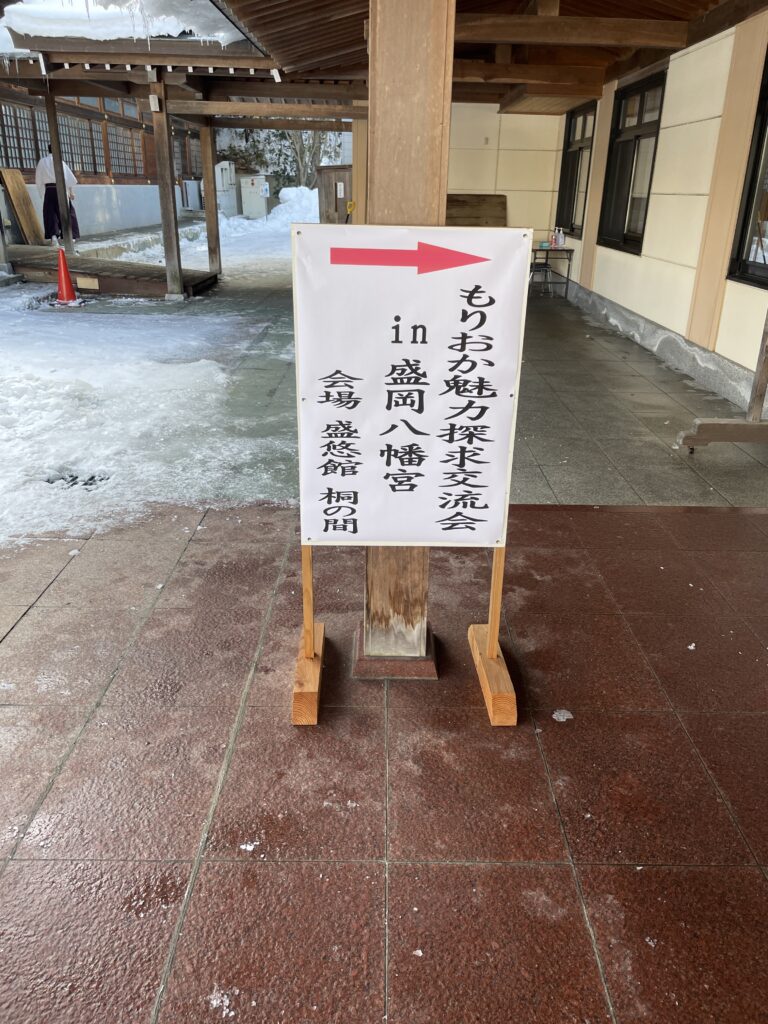 もりおか魅力探求交流会
in 盛岡八幡宮
会場 盛悠館 桐の間